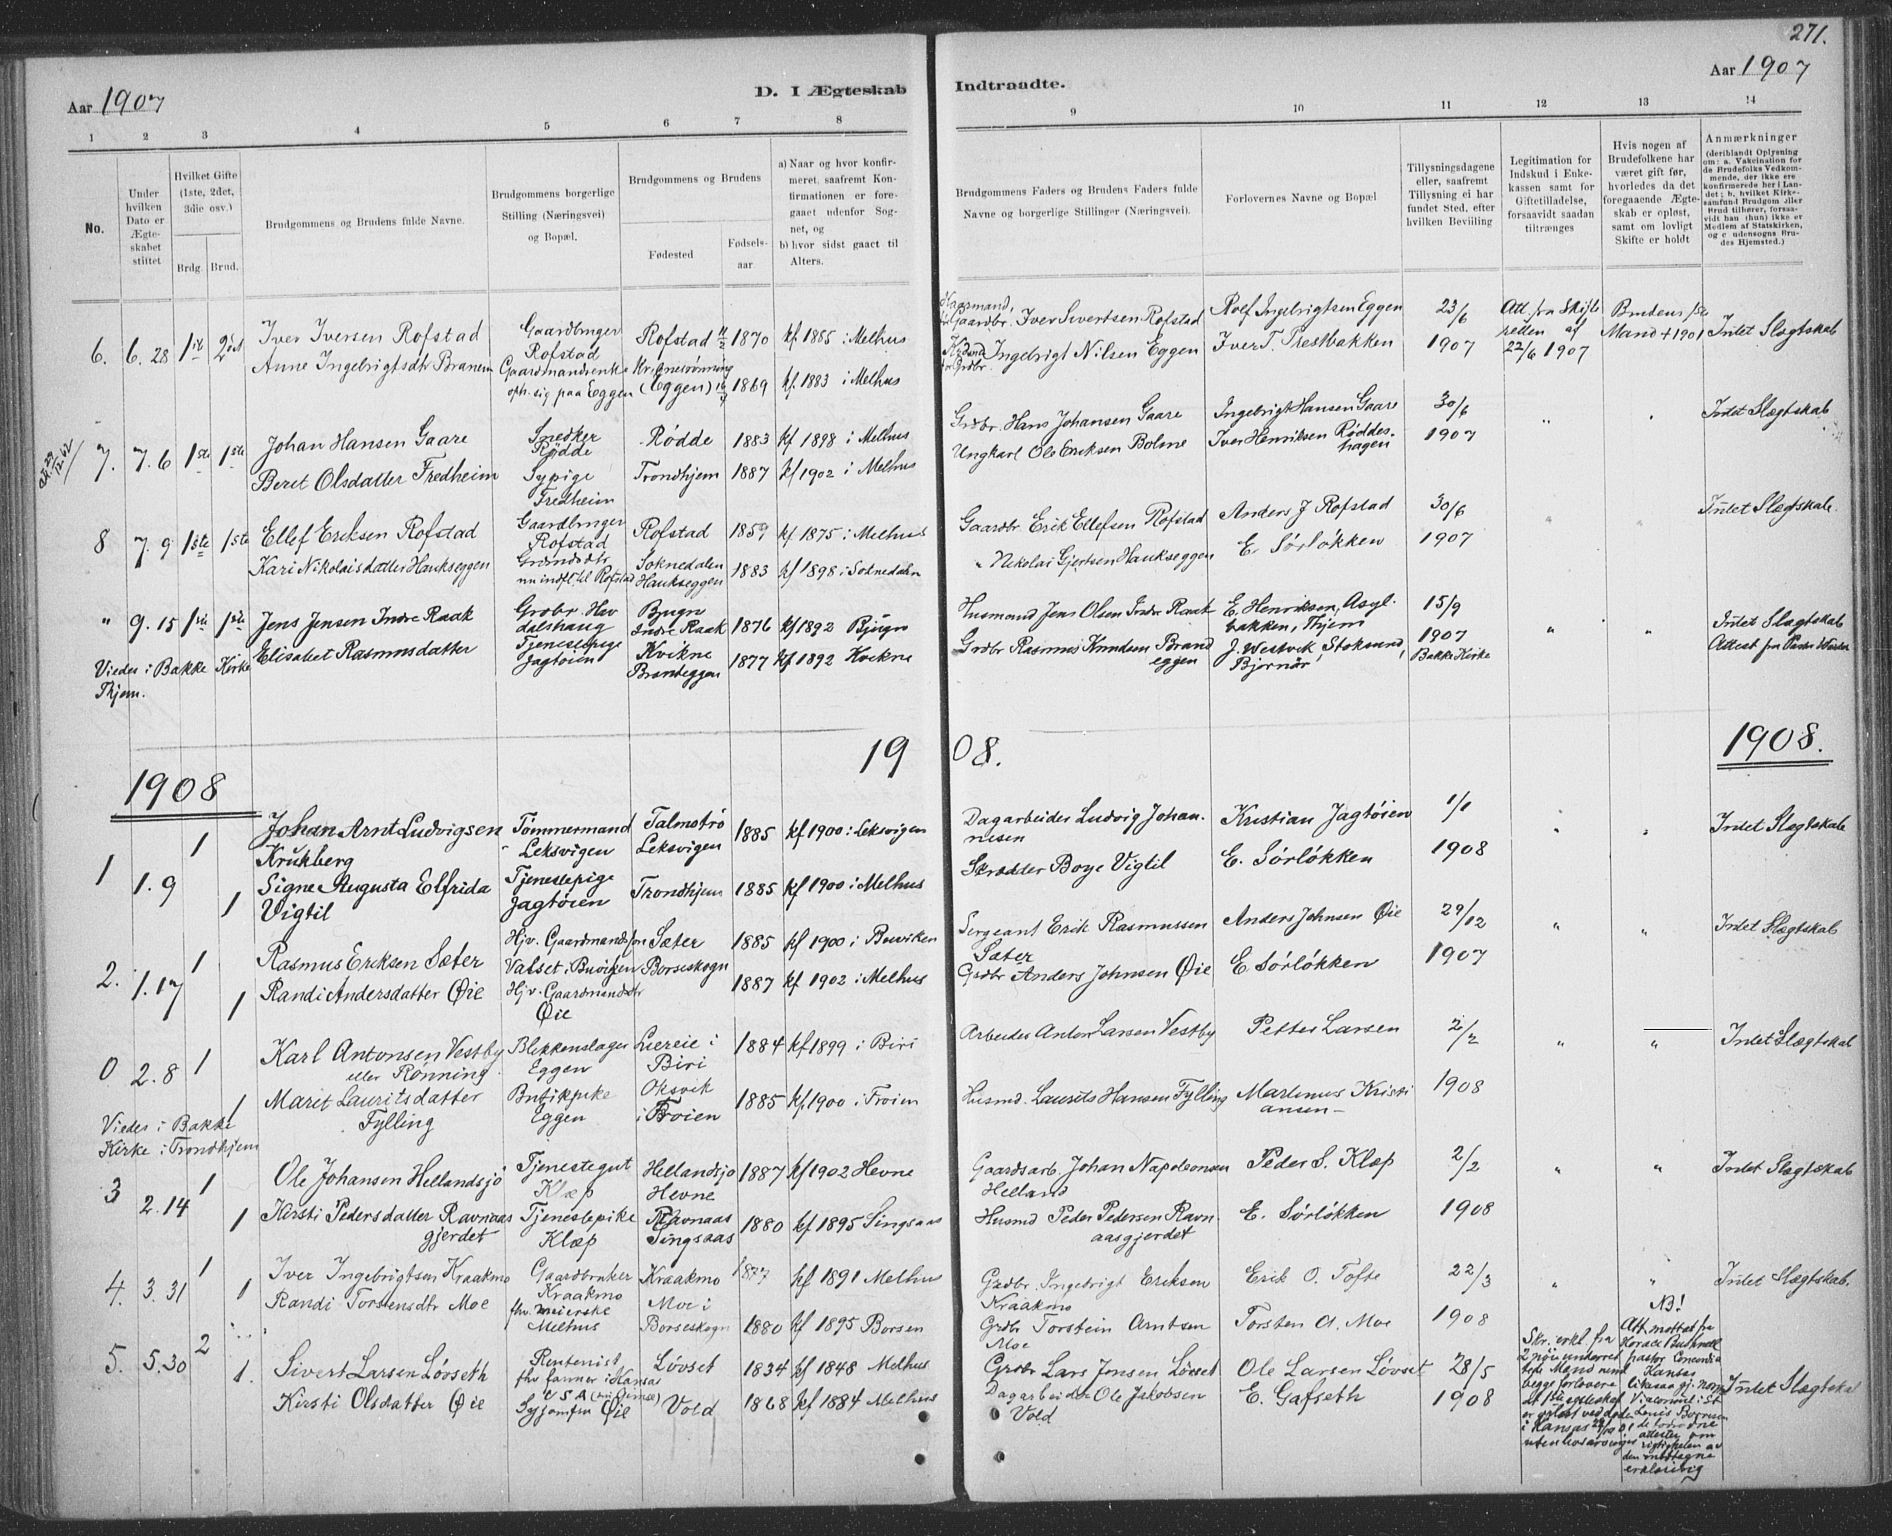 271.
Aar 1907
D. I Ægteskab Indtraadte.
Aar 1907
1 2 3 4 5 6 7 8 9 10 11 12 13 14
No.
Under hvilken Dato er Ægteskabet stiftet
Hvilket Gifte (1ste, 2det, 3die osv.)
Brdg. Brud.
Brudgommens og Brudens fulde Navne.
Brudgommens borgerlige Stilling (Næringsvei) og Bopæl.
Brudgommens og Brudens
Fødested
Fødsels-aar.
a) Naar og hvor konfirmeret, saafremt Konfirmationen er foregaaet udenfor Sognet, og
b) hvor sidst gaaet til Alters.
Brudgommens Faders og Brudens Faders fulde Navne og borgerlige Stillinger (Næringsvei).
Forlovernes Navne og Bopæl
Tillysningsdagene eller, saafremt Tillysning ei har fundet Sted, efter hvilken Bevilling
Legitimation for Indskud i Enkekassen samt for Giftetilladelse, forsaavidt saadan tiltrænges
Hvis nogen af Brudefolkene har været gift før, hvorledes da det foregaaende Ægteskab er opløst, samt om lovligt Skifte er holdt
Anmærkninger
(deriblandt Oplysning om: a. Vakcination for de Brudefolks Vedkommende, der ikke ere konfirmerede her i Landet; b. hvilket Kirkesamfund Brudgom eller Brud tilhører, forsaavidt han (hun) ikke er Medlem af Statskirken, og c. udensogns Brudes Hjemsted.)
6. 6. 28 1ste 2det Iver Iversen Rofstad Gaardbruger Rofstad Rofstad 1870 kf. 1885 i Melhus
Anne Ingebrigtsdtr Branem Gaardmandsenke oph. sig paa Eggen (Eggen) 1869 kf. 1883 i Melhus
Gaardbr. Iver Sivertsen Rofstad Rolf Ingebrigtsen Eggen 23/6 Att. fra Skifteretten af 22/6 1907 Brudens Mand + 1901 Intet Slægtskab
Ingebrigt Nilsen Eggen Iver T. Trestbakken 1907
7. 7. 6 1ste 1ste Johan Hansen Gaare Snedker Rødde Rødde 1883 kf 1898 i Melhus
Beret Olsdatter Fredheim Sypige Fredheim Trondhjem 1887 kf 1902 i Melhus
Grdbr. Hans Johansen Gaare Ingebrigt Hansen Gaare 30/6 " Intet Slægtskab
Ungkarl Ole Eriksen Bolme Iver Henriksen Røddeshagen 1907
8 7. 9 1ste 1ste Ellef Eriksen Rofstad Gaardbruger Rofstad Rofstad 1859 kf 1875 i Melhus
Kari Nikolaisdatter Haukseggen indfl. til Rofstad Soknedalen Haukseggen 1883 kf 1898 i Soknedaln
Gaardbr Erik Ellefsen Rofstad Anders J Rofstad 30/6 " " Intet Slægtskab.
" Nikolai Gjertsen Haukseggen E. Sörløkken 1907
" 9. 15 1ste 1ste Jens Jensen Indre Raak Grdbr. Havdalshaug Bjugn Indre Raak 1876 kf 1892 Bjugn
Elisabet Rasmusdatter Tjenestepige Jagtøien Kvikne Brandeggen 1877 kf 1892 Kvikne
Viedes i Bakke Kirke Thjem.
Husmand Jens Olsen Indre Raak E. Henriksen, Asylbakken, Thjem 15/9 " " Intet Slægtskab
Grdbr Rasmus Knudsen Brandeggen J. Westvik Stoksund, Bjørnør 1907 Bakke Kirke Attest fra
1908 1908. 1908.
1 1. 9 1 Johan Arnt Ludvigsen Krukberg Tømmermand Leksvigen Leksvigen 1885 kf 1900 i Leksvigen
1 Signe Augusta Elfrida Vigtil Tjenestepige Jagtøien Trondhjem 1885 kf 1900 i Melhus
Dagarbeider Ludvig Johannesen Kristian Jagtøien 1/1 " " Intet Slægtskab
Skrædder Boye Vigtil E. Sörløkken 1908
2. 1. 17 1 Rasmus Eriksen Sæter Hjv. Gaardmandssøn Valset i Buviken Sæter Borseskogn 1885 kf 1900 i Buviken
1 Randi Andersdatter Øie Hjv. Gaardmandsdtr Øie 1887 kf 1902 i Melhus
Sergeant Erik Rasmussen Sæter Anders Johnsen Øie 29/12 " " Intet Slægtskab
Grdbr Anders Johnsen Øie E. Sörløkken 1907
0 2. 8 1 Karl Antonsen Vestby eller Rønning Blikkenslager Eggen i Biri 1884 kf 1899 i Biri
1 Marit Lauritsdatter Fylling Butikpike Eggen i Froien 1885 kf 1900 i Froien
Viedes i Bakke Kirke i Trondhjem
Arbeider Anton Larsen Vestby Petter Larsen 2/2 " " Intet Slægtskab
Husmd. Laurits Hansen Fylling Martinus Kristiansen 1908
3 2. 14 1 Ole Johansen Hellandsjø Tjenestegut Klæp Hellandsjø Hevne 1887 kf 1902 Hevne
1 Kirsti Pedersdatter Ravnaasgjerdet Tjenestepike Klæp Ravnaas Singsaas 1880 kf 1895 Singsaas
Gaardsarb. Johan Napoleonsen Helland Peder S. Klæp 2/2 " " Intet Slægtskab
Husmd Peder Pedersen Ravnaasgjerdet E. Sörløkken 1908
4. 3. 31 1 Iver Ingebrigtsen Kraakmo Gaardbruker Kraakmo Kraakmo 1877 kf 1891 Melhus
1 Randi Torstensdtr Moe fhv. meierske Melhus Moe i Borseskogn 1880 kf 1895 Borsen
Grdbr. Ingebrigt Eriksen Kraakmo Erik O. Tofte 22/3 " " Intet Slægtskab.
Grdb Torstein Arntsen Moe Torsten A. Moe 1908
5. 5. 30 2 Sivert Larsen Løvseth Rentenist fhv. farmer i Kansas USA Løvset 1834 kf 1848 Melhus
1. Kirsti Olsdatter Øie Syjomfru Øie Vold 1868 kf 1884 Melhus
Grdbr Lars Jonsen Løvset Ole Larsen Løvset 28/5 Intet Slægtskab
Dagarbeider Ole Jakobsen Vold E. Gafseth 1908
Skr. erkl. fra 2 begge forlovere at 1ste egteskab er opløst ved døden i Kansas
NB! Att. mottat fra pastor Kansas